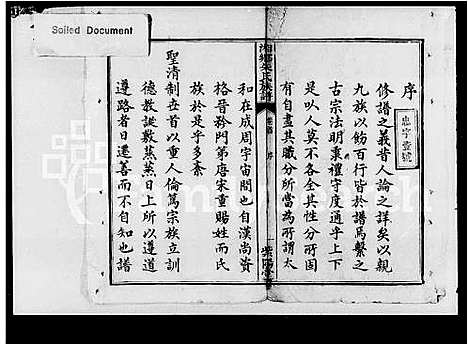 Soiled Document
忠字壹號
序
修譜之義昔人論之詳矣以親
九族以飭百行皆於譜焉繫之
古宗法明秉禮守度通乎上下
是以人莫不各全其性分所固
有自盡其職分所當為所謂太
湘鄉朱氏族譜
卷首 序
紫陽堂
和在成周宇宙間也自漢尚資
格晉矜門第唐宋重賜姓而氏
族於是乎多紊
聖清制世首以重人倫篤宗族立訓
德教誕敷蒸蒸日上所以遵道
遵路者日遷善而不自知也譜